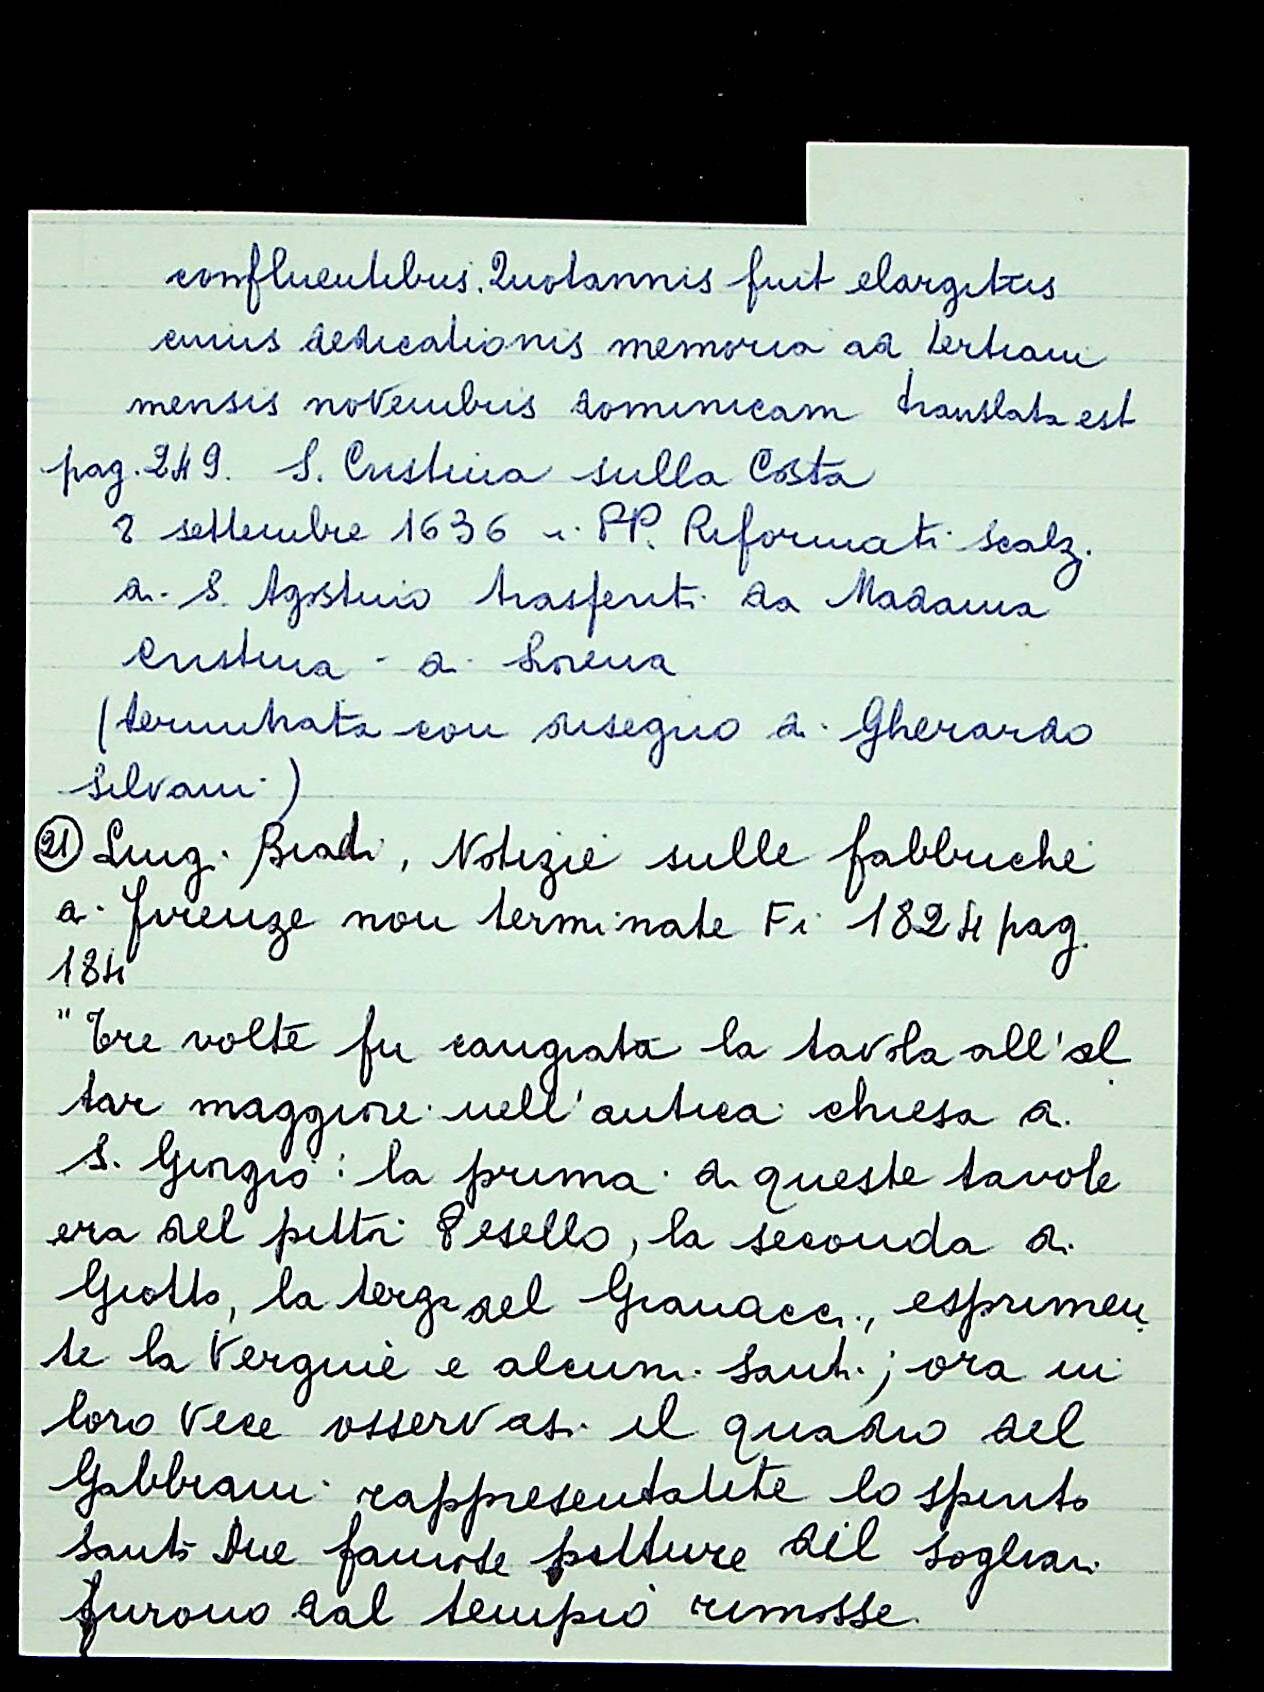 confluentibus. Quotannis fuit elargitus
cuius dedicationis memoria ad tertiam
mensis novembris dominicam translata est
pag. 249. S. Cristina sulla Costa
2 settembre 1636 i PP. Riformati Scalz.
di S. Agostino trasferiti da Madama
Cristina di Lorena
(terminata con disegno di Gherardo
Silvani)
21 Luigi Biadi, Notizie sulle fabbriche
di Firenze non terminate Fi 1824 pag.
184
"Tre volte fu cangiata la tavola all'al
tar maggiore nell'antica chiesa di
S. Giorgio: la prima di queste tavole
era del pittor Pesello, la seconda di
Giotto, la terza del Granacci, esprimen
te la Vergine e alcuni Santi; ora in
loro vece osservasi il quadro del
Gabbiani rappresentatite lo spirito
santo Due famose pitture del Sogliani
furono dal tempio rimosse.